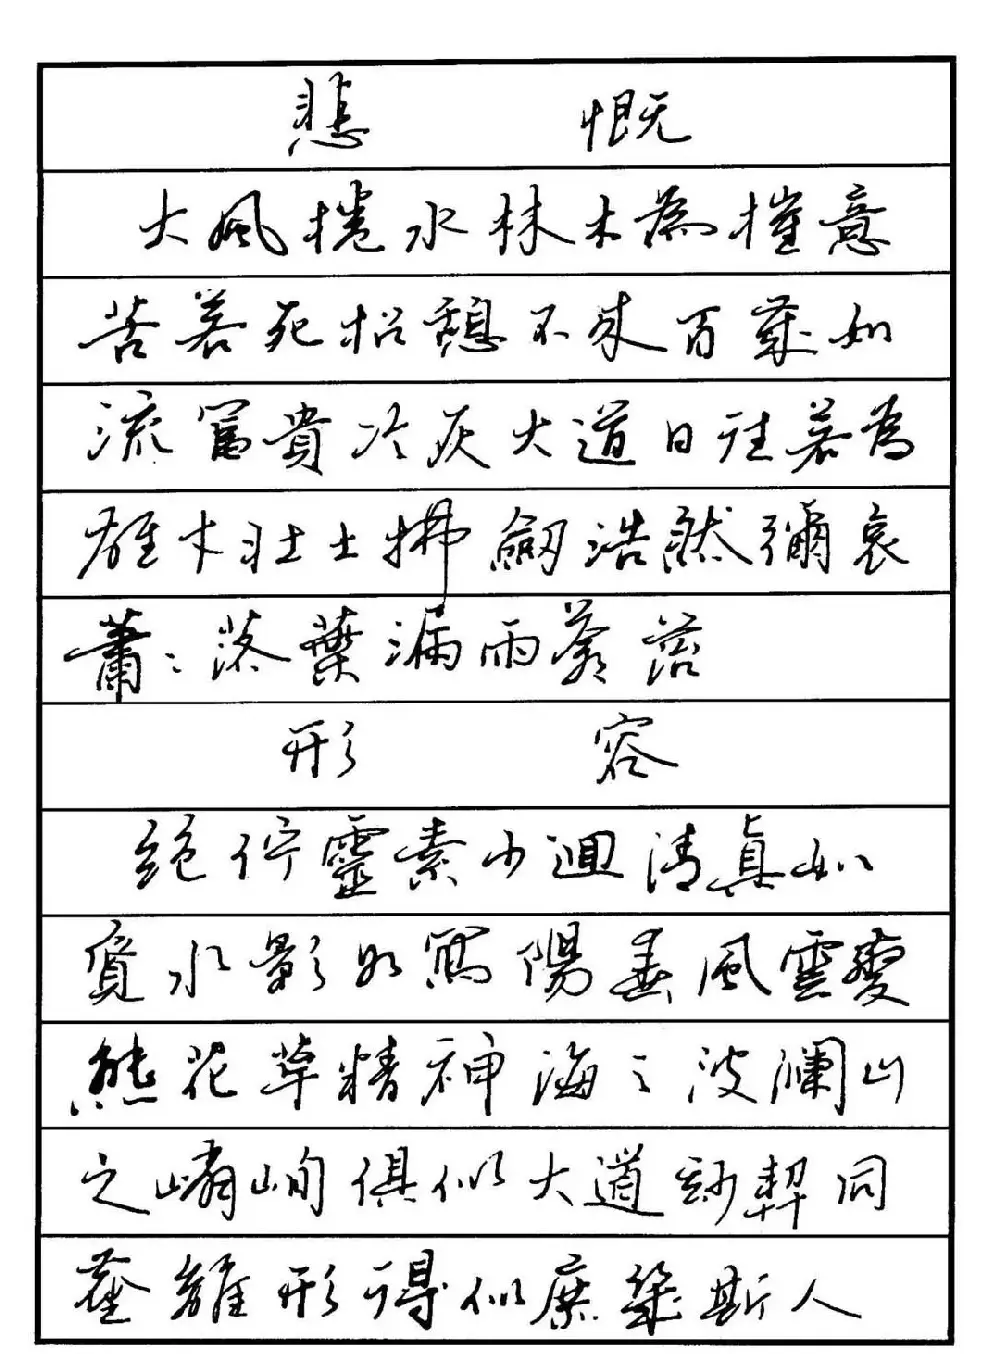 悲慨
大風捲水林木為摧意
苦若死招憩不來百歲如
流富貴冷灰大道日往若為
雄才壯士拂劍浩然彌哀
蕭〻落葉漏雨蒼苔
形容
絕佇靈素少迴清真如
覓水影如寫陽春風雲變
態花草精神海之波瀾山
之嶙峋俱似大道妙契同
塵離形得似庶幾斯人